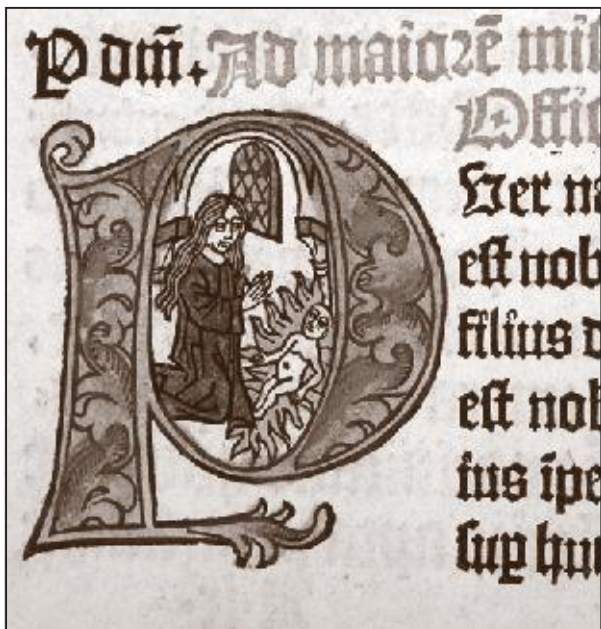 P dm̄. Ad maiorē mi
Offic
P
Uer na
est nob
filius d
est nob
ius īpe
sup hu